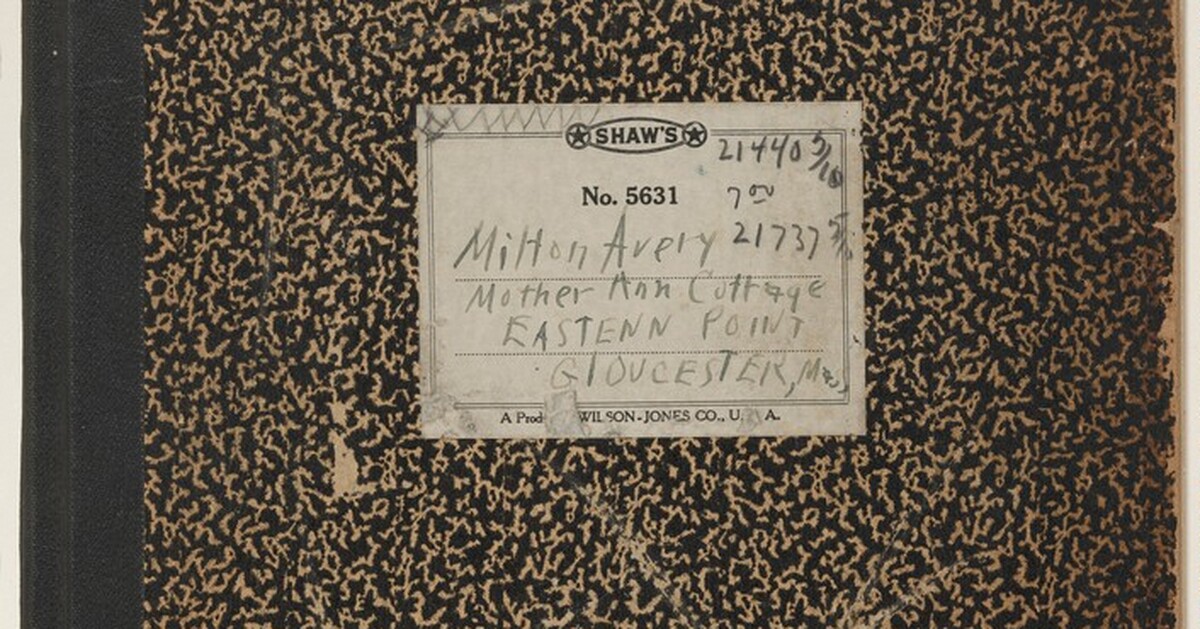 SHAW'S
21440 5/10
No. 5631 7 00
Milton Avery 21737
Mother Ann Cottage
EASTENN POINT
GLOUCESTER, Mass
A Prod WILSON-JONES CO., U. A.